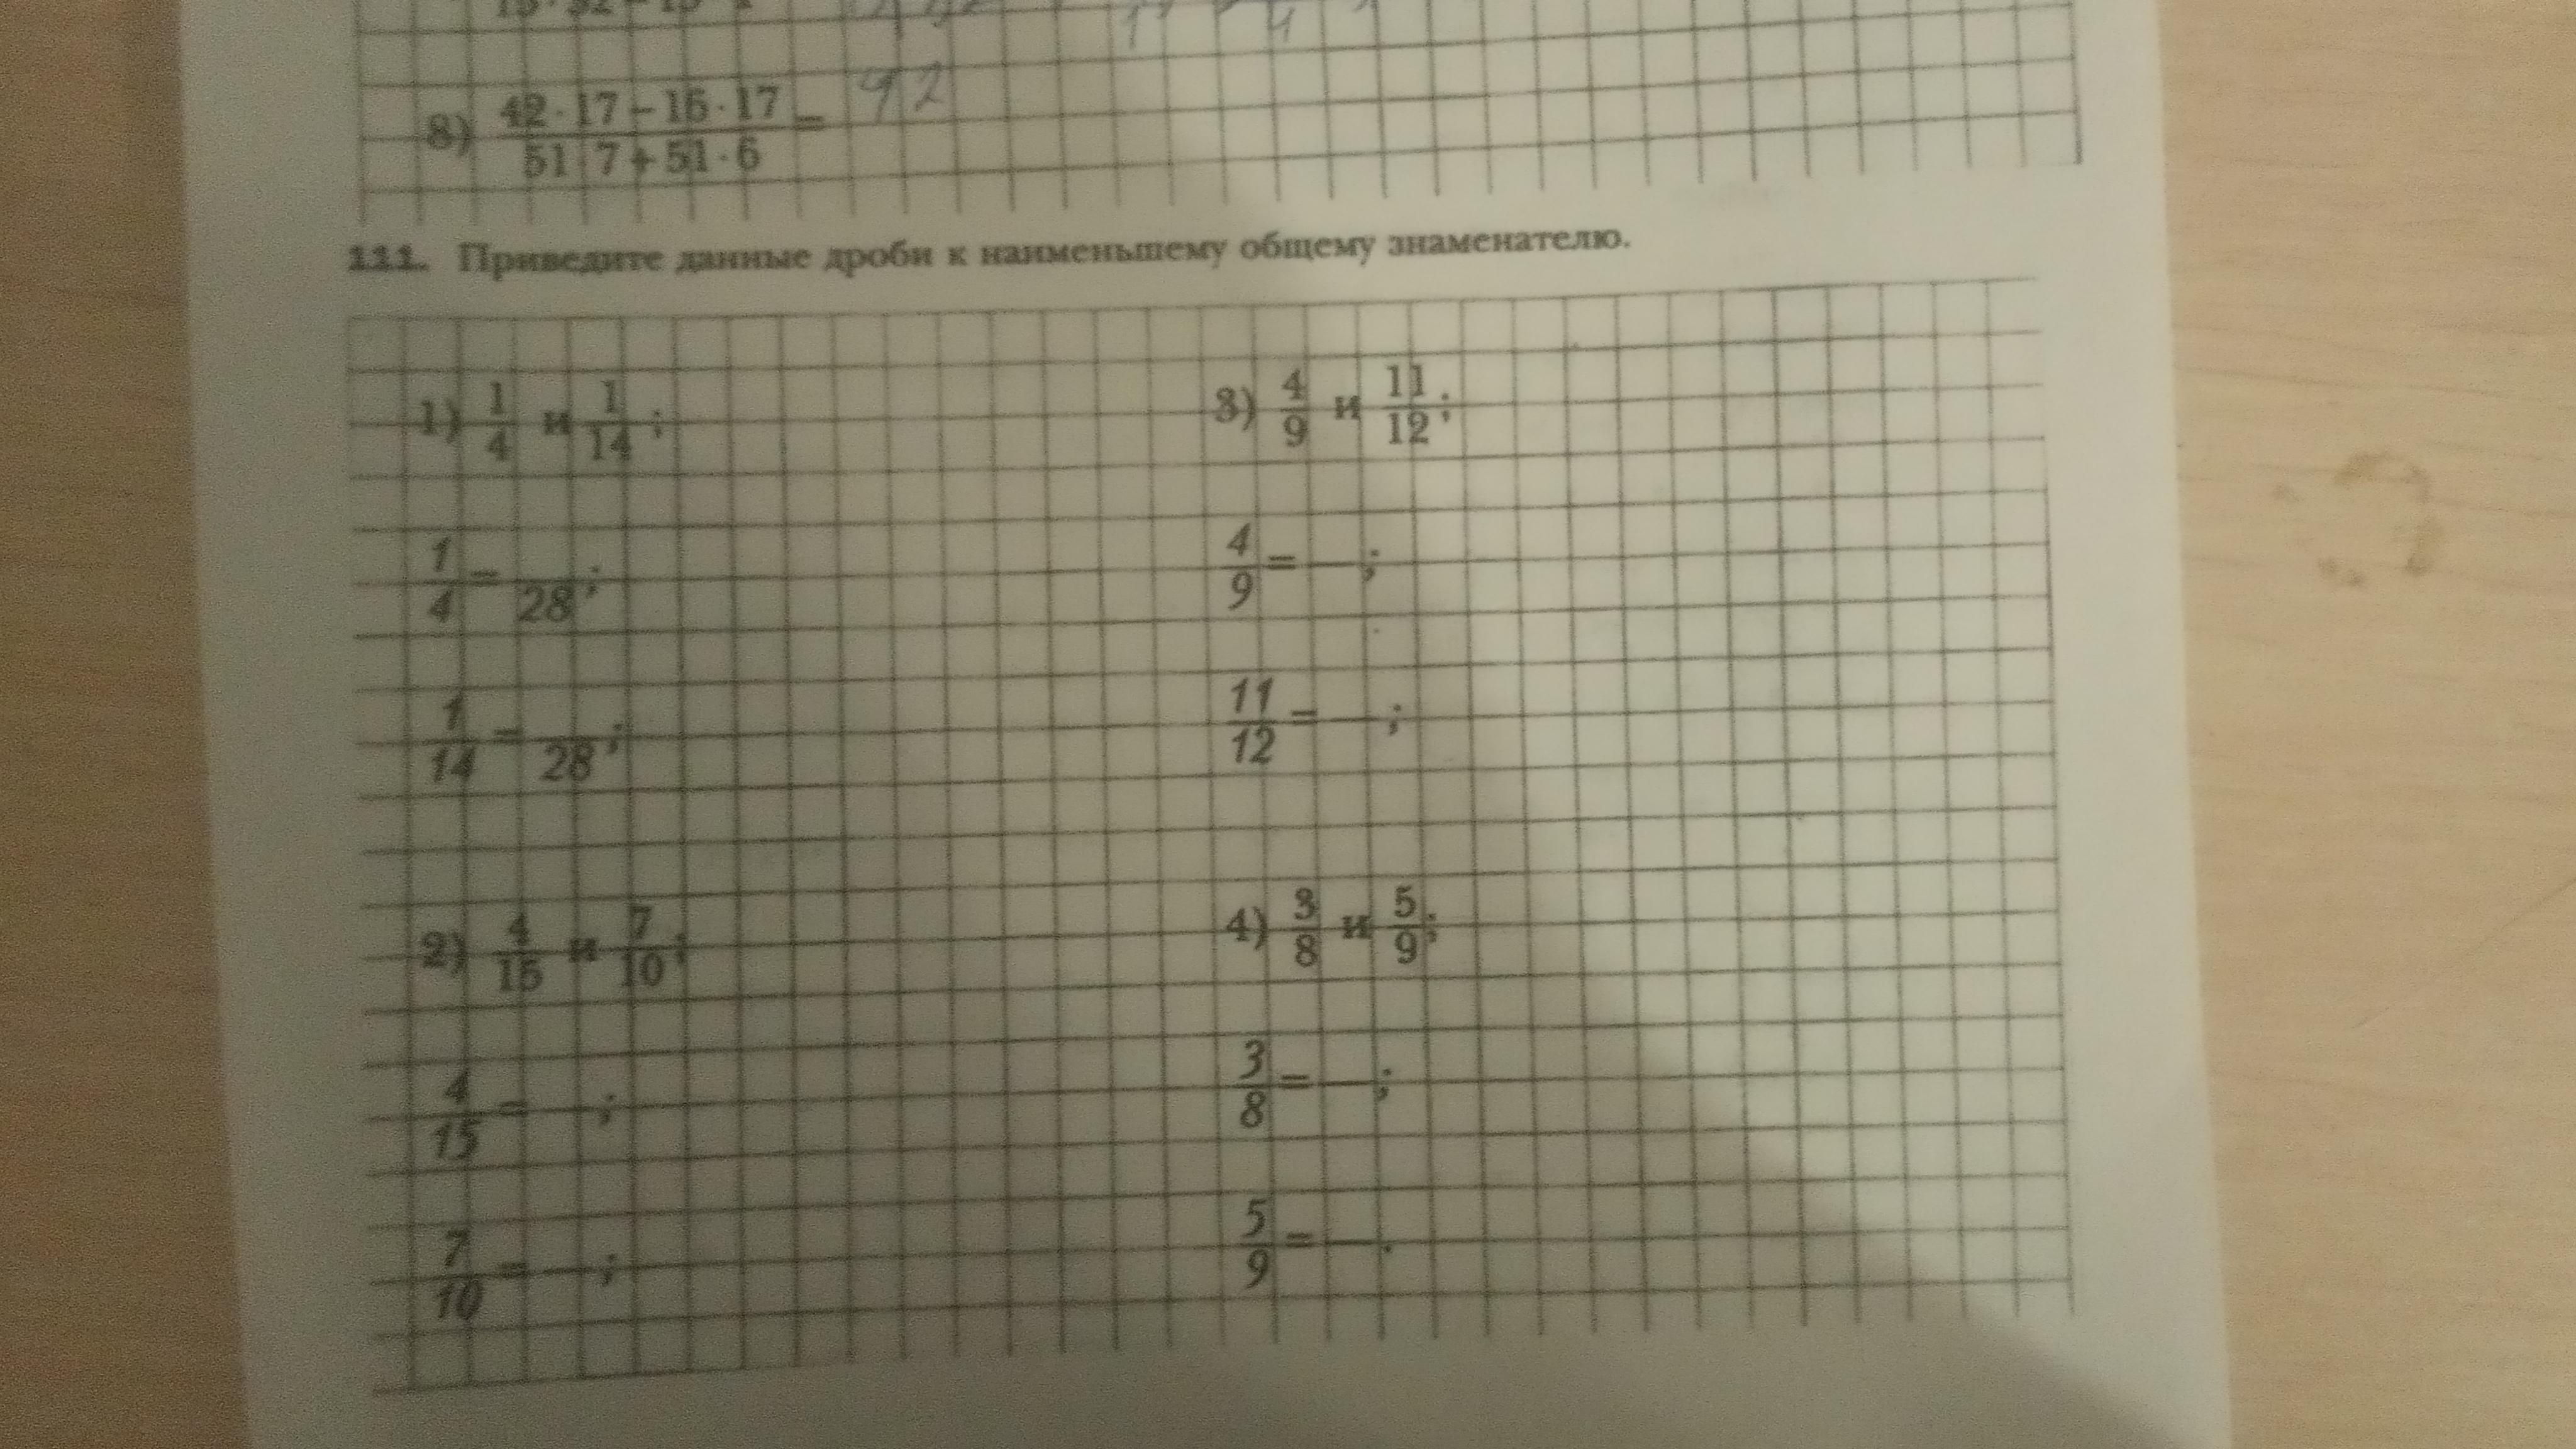 8) 42 · 17 − 16 · 17 / 51 · 7 + 51 · 6 = 42
111. Приведите данные дроби к наименьшему общему знаменателю.
1) 1/4 и 1/14 ;
1/4 = /28 ;
1/14 = /28 ;
2) 4/15 и 7/10 ;
4/15 = — ;
7/10 = — ;
3) 4/9 и 11/12 ;
4/9 = — ;
11/12 = — ;
4) 3/8 и 5/9 ;
3/8 = — ;
5/9 = — .